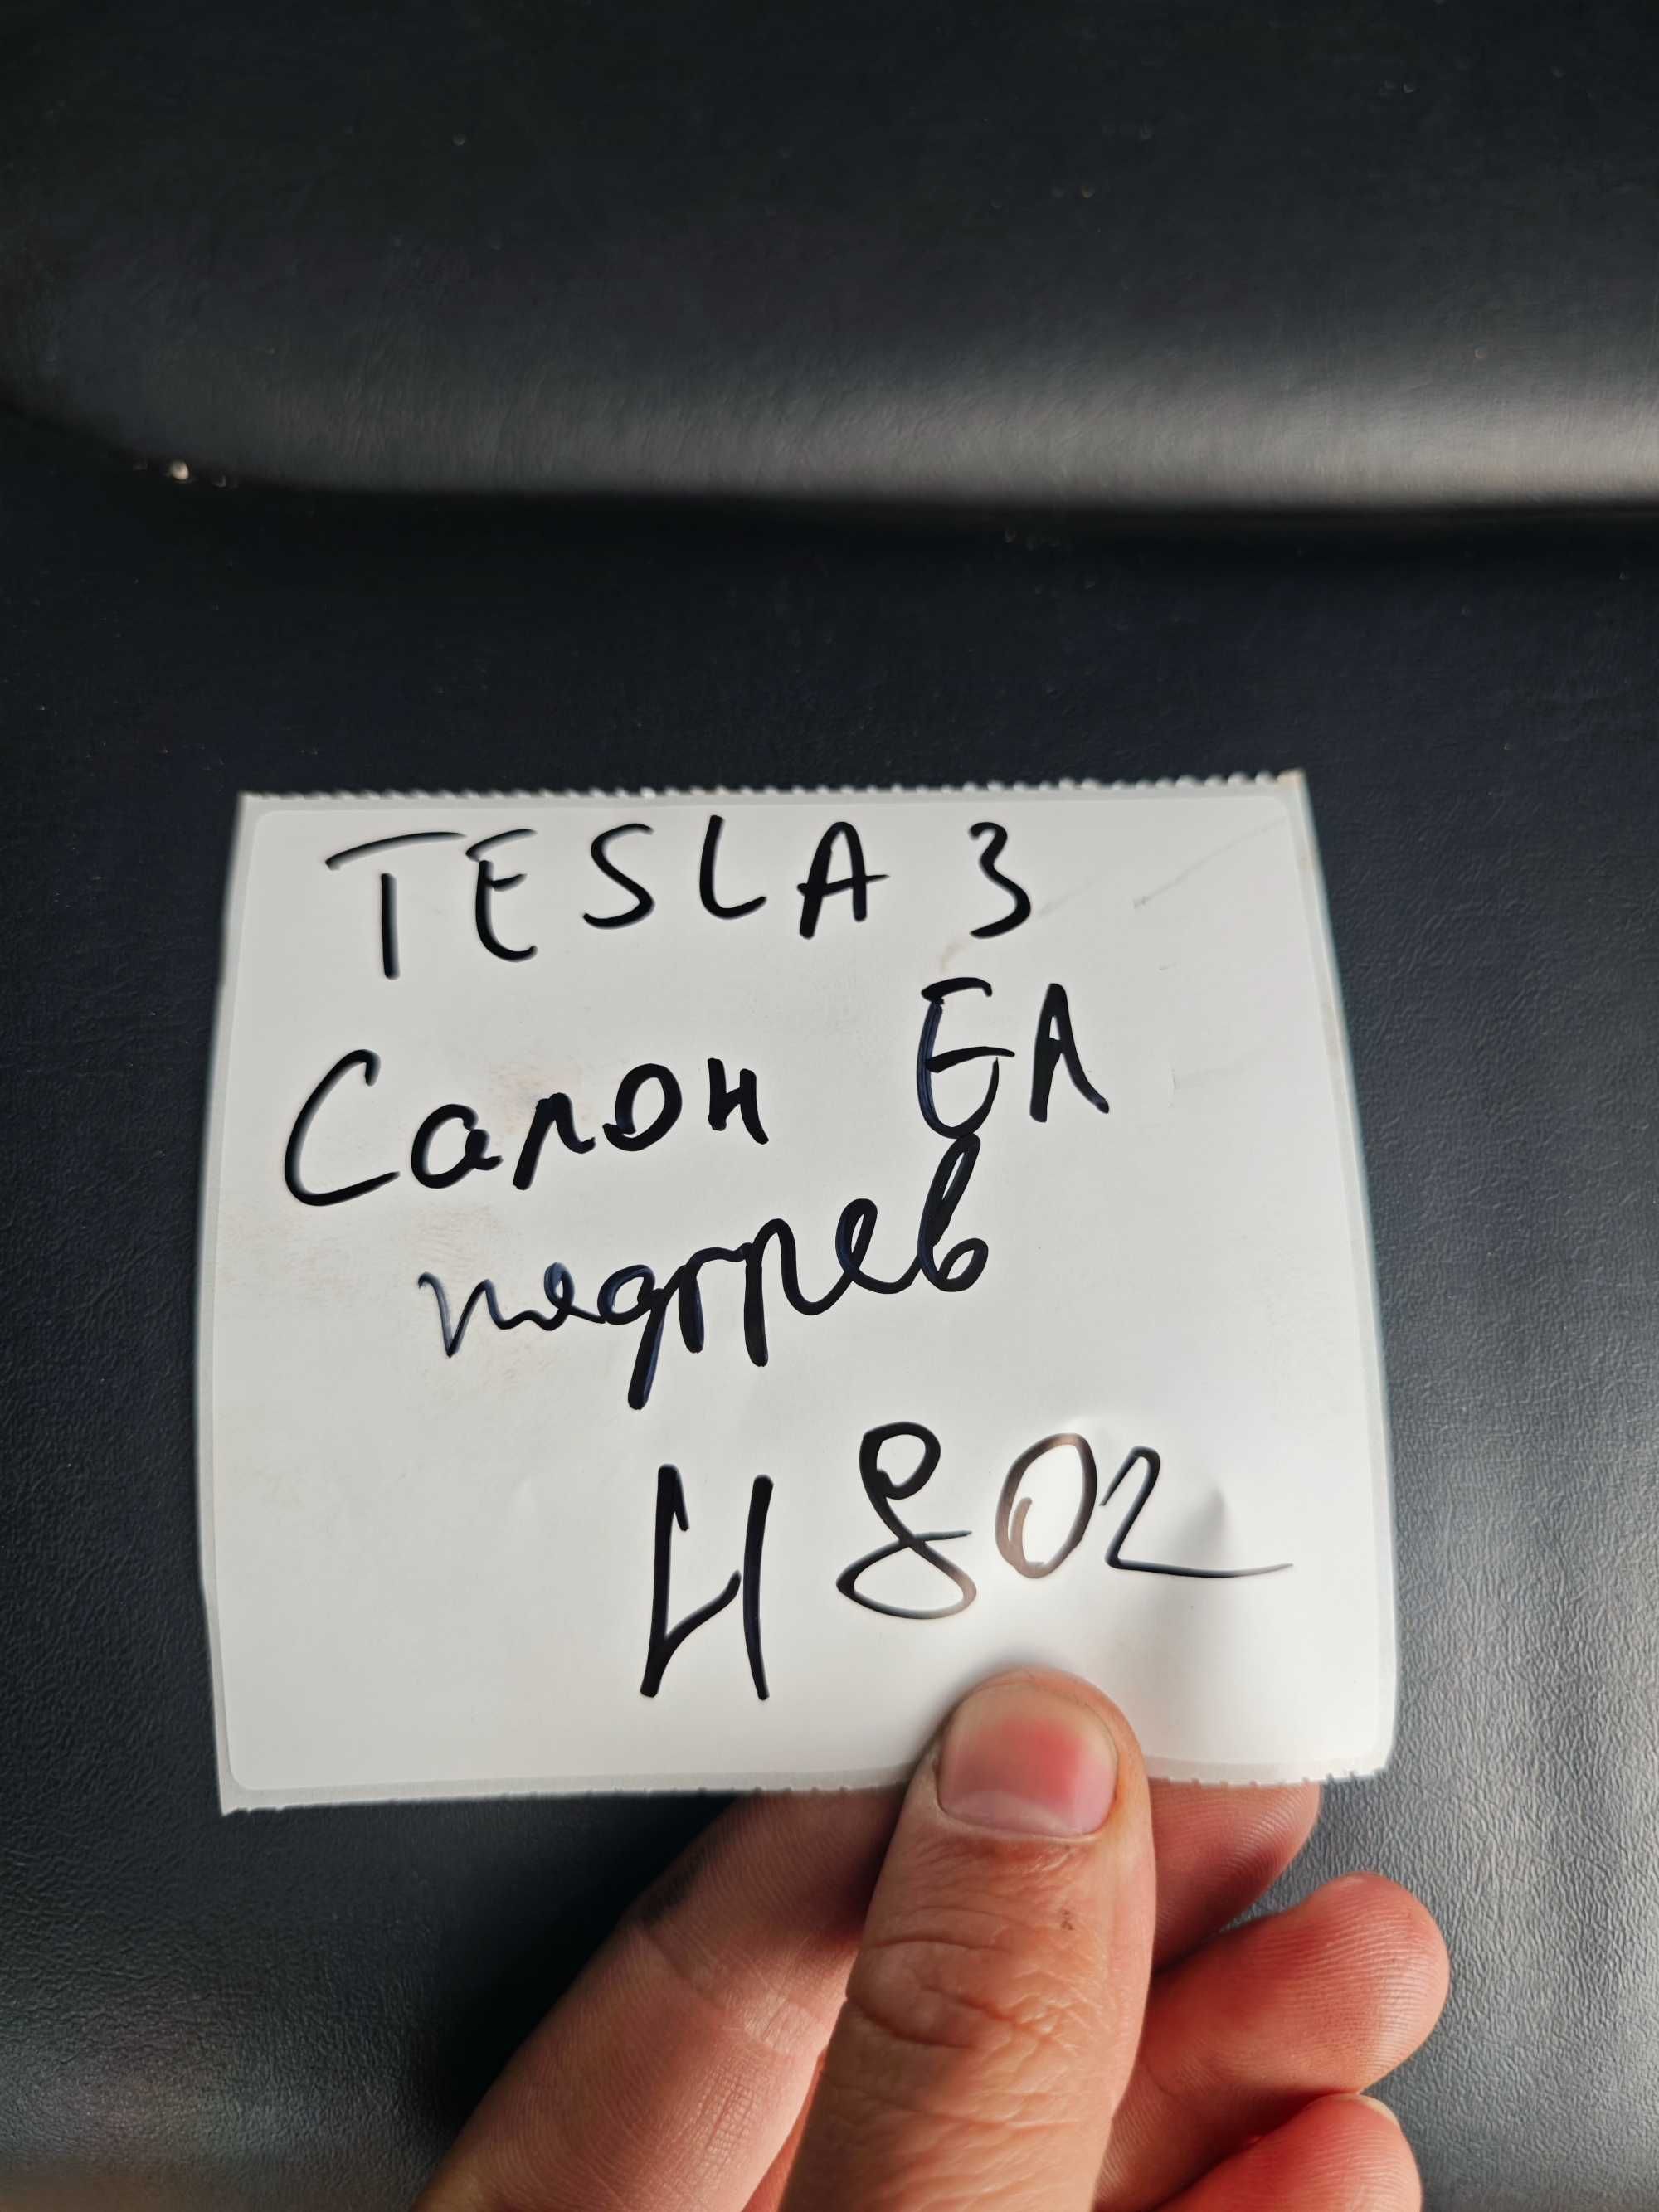 TESLA 3
Салон ЕА
подгрев
H802